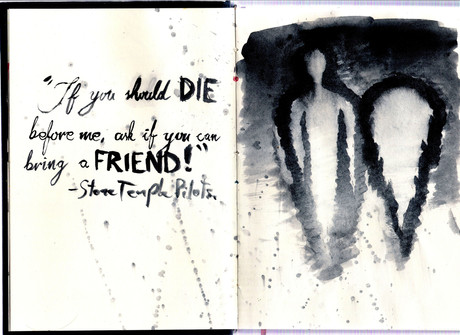 "If you should DIE
before me, ask if you can
bring a FRIEND!"
-Stone Temple Pilots.